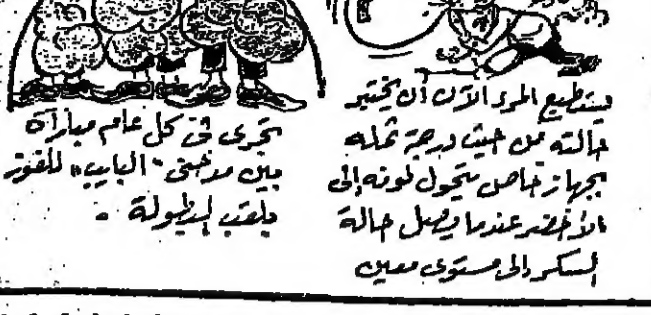 يستطيع المرء الآن أن يختبر
حالته من حيث درجة ثمله
بجهاز خاص يتحول لونه إلى
الأخضر عندما يصل حالة
السكر إلى مستوى معين
تجرى في كل عام مباراة
بين مدخني "البايب" للفوز
بلقب البطولة .